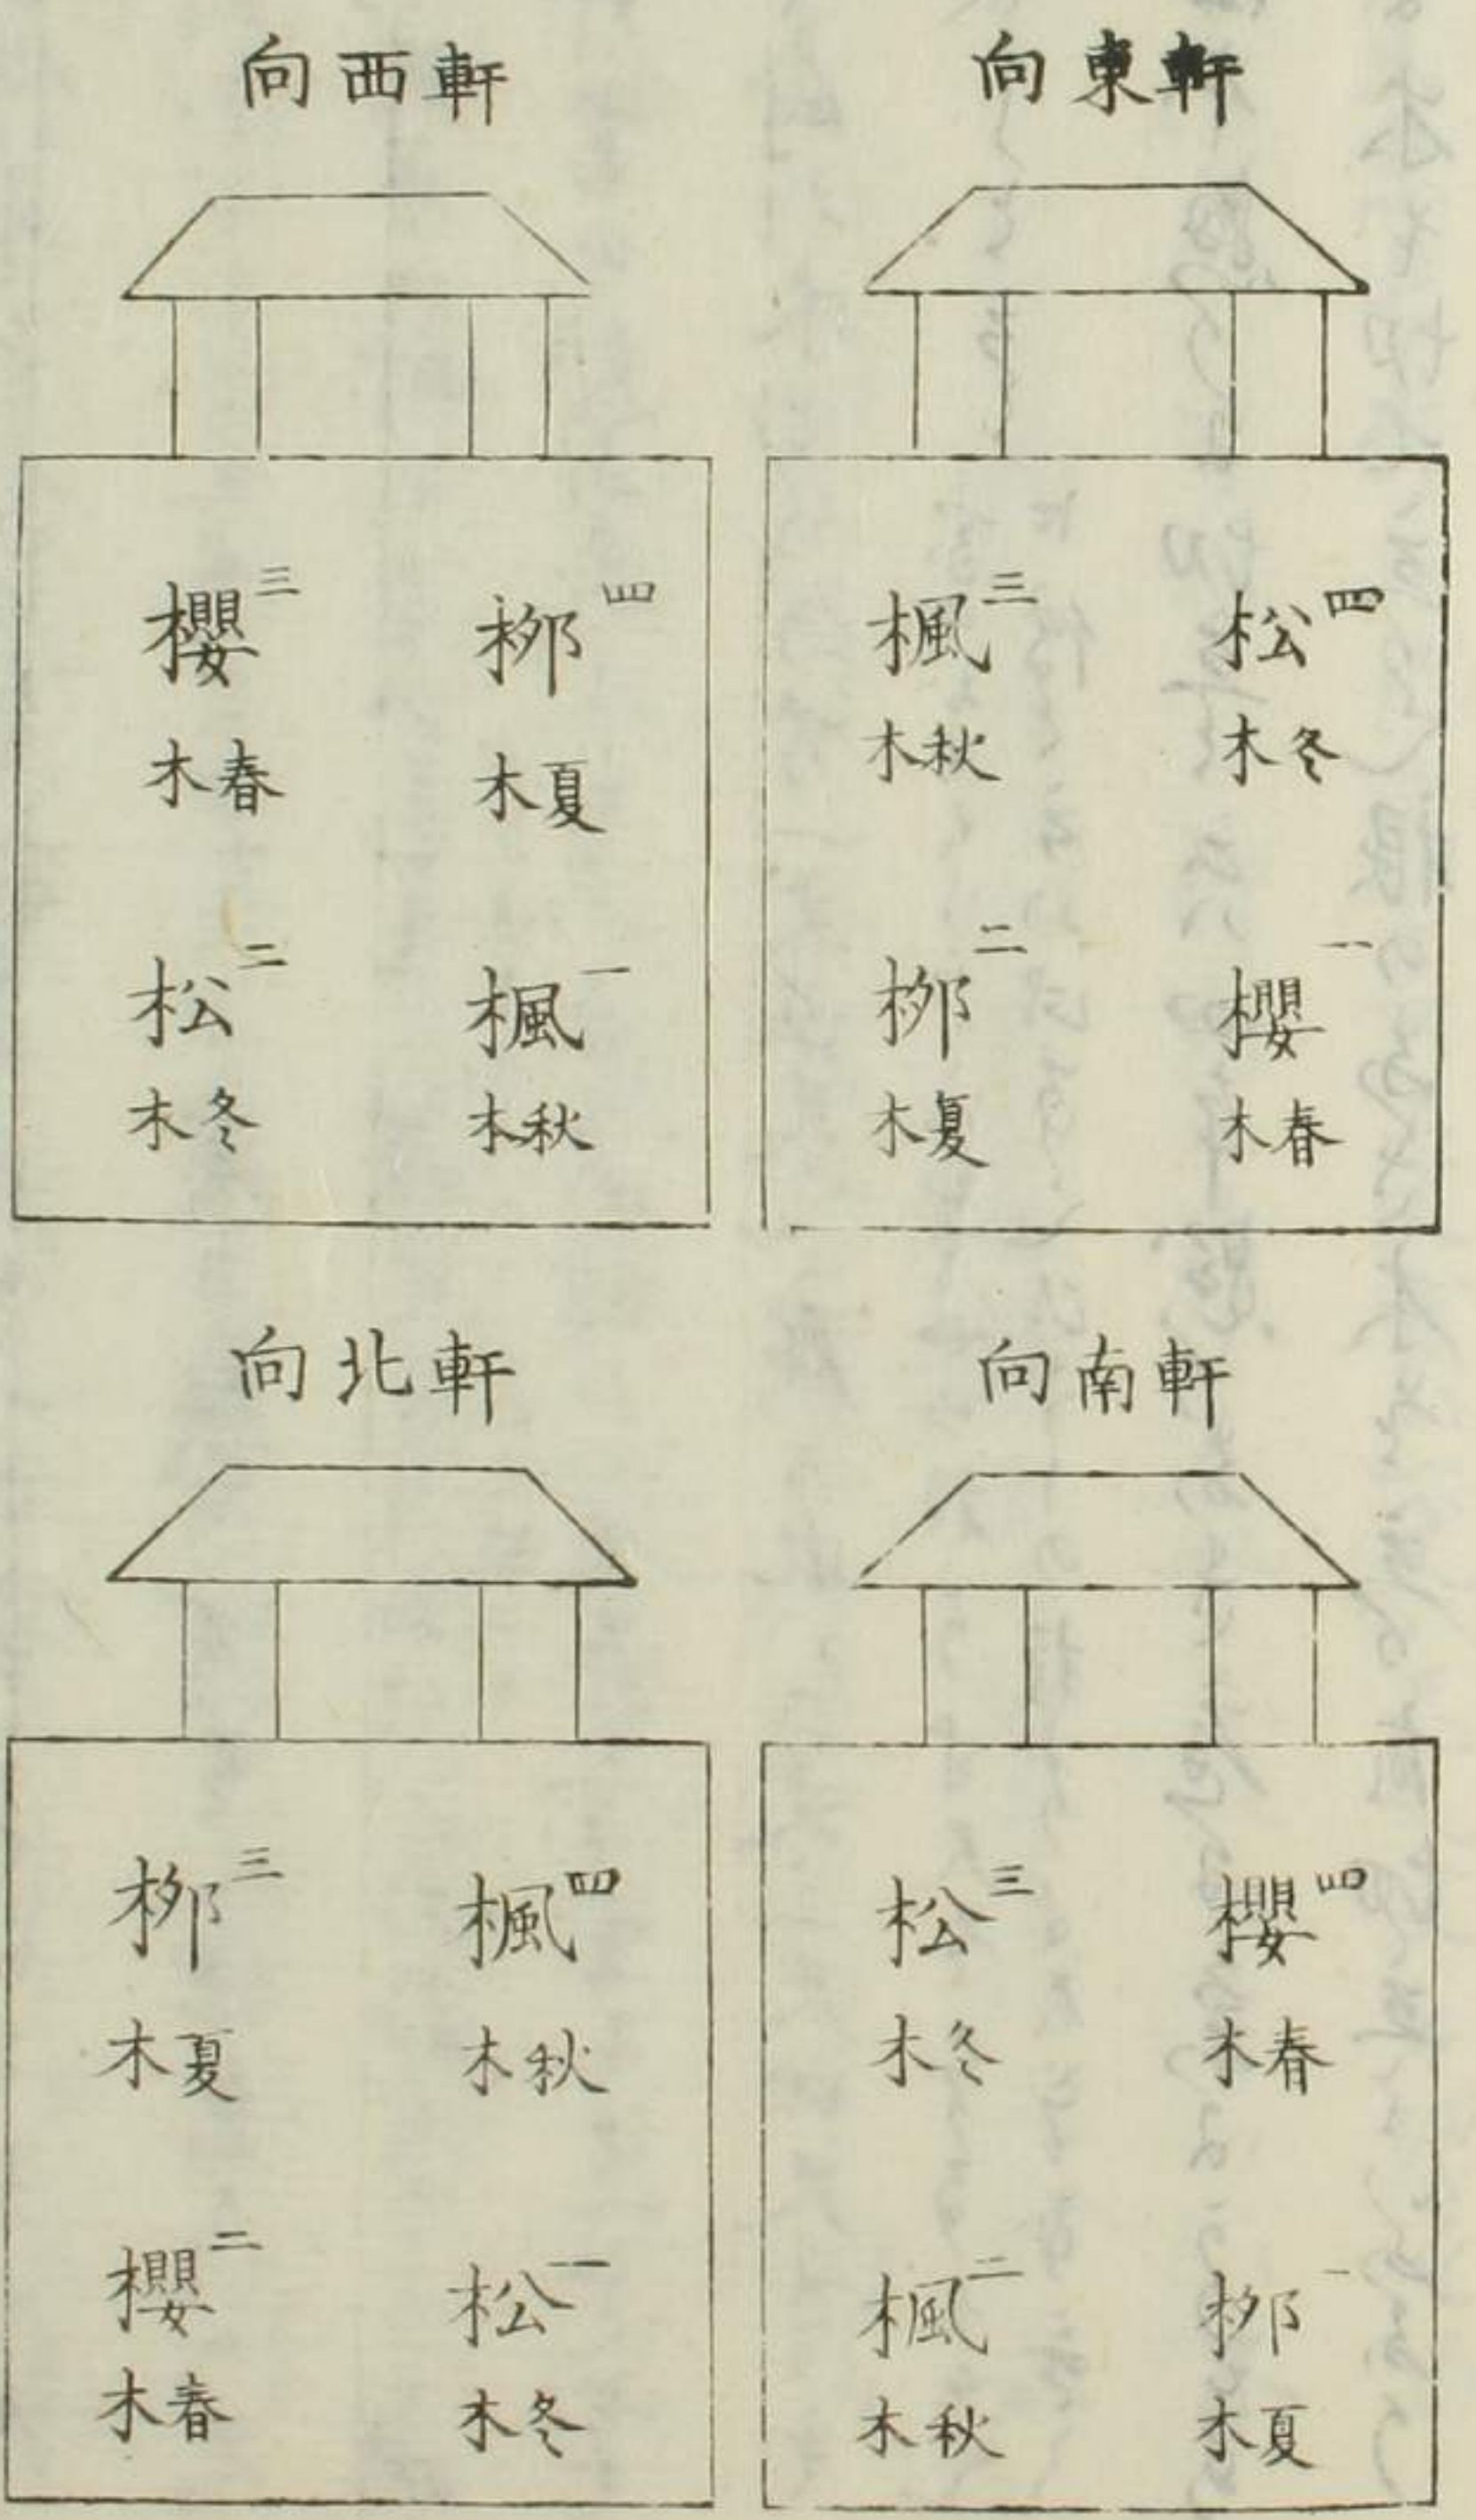 軒東向
四
松
冬木
三
楓
秋木
一
櫻
春木
二
栁
夏木
軒西向
四
栁
夏木
三
櫻
春木
一
楓
秋木
二
松
冬木
軒南向
四
櫻
春木
三
松
冬木
一
栁
夏木
二
楓
秋木
軒北向
四
楓
秋木
三
栁
夏木
一
松
冬木
二
櫻
春木